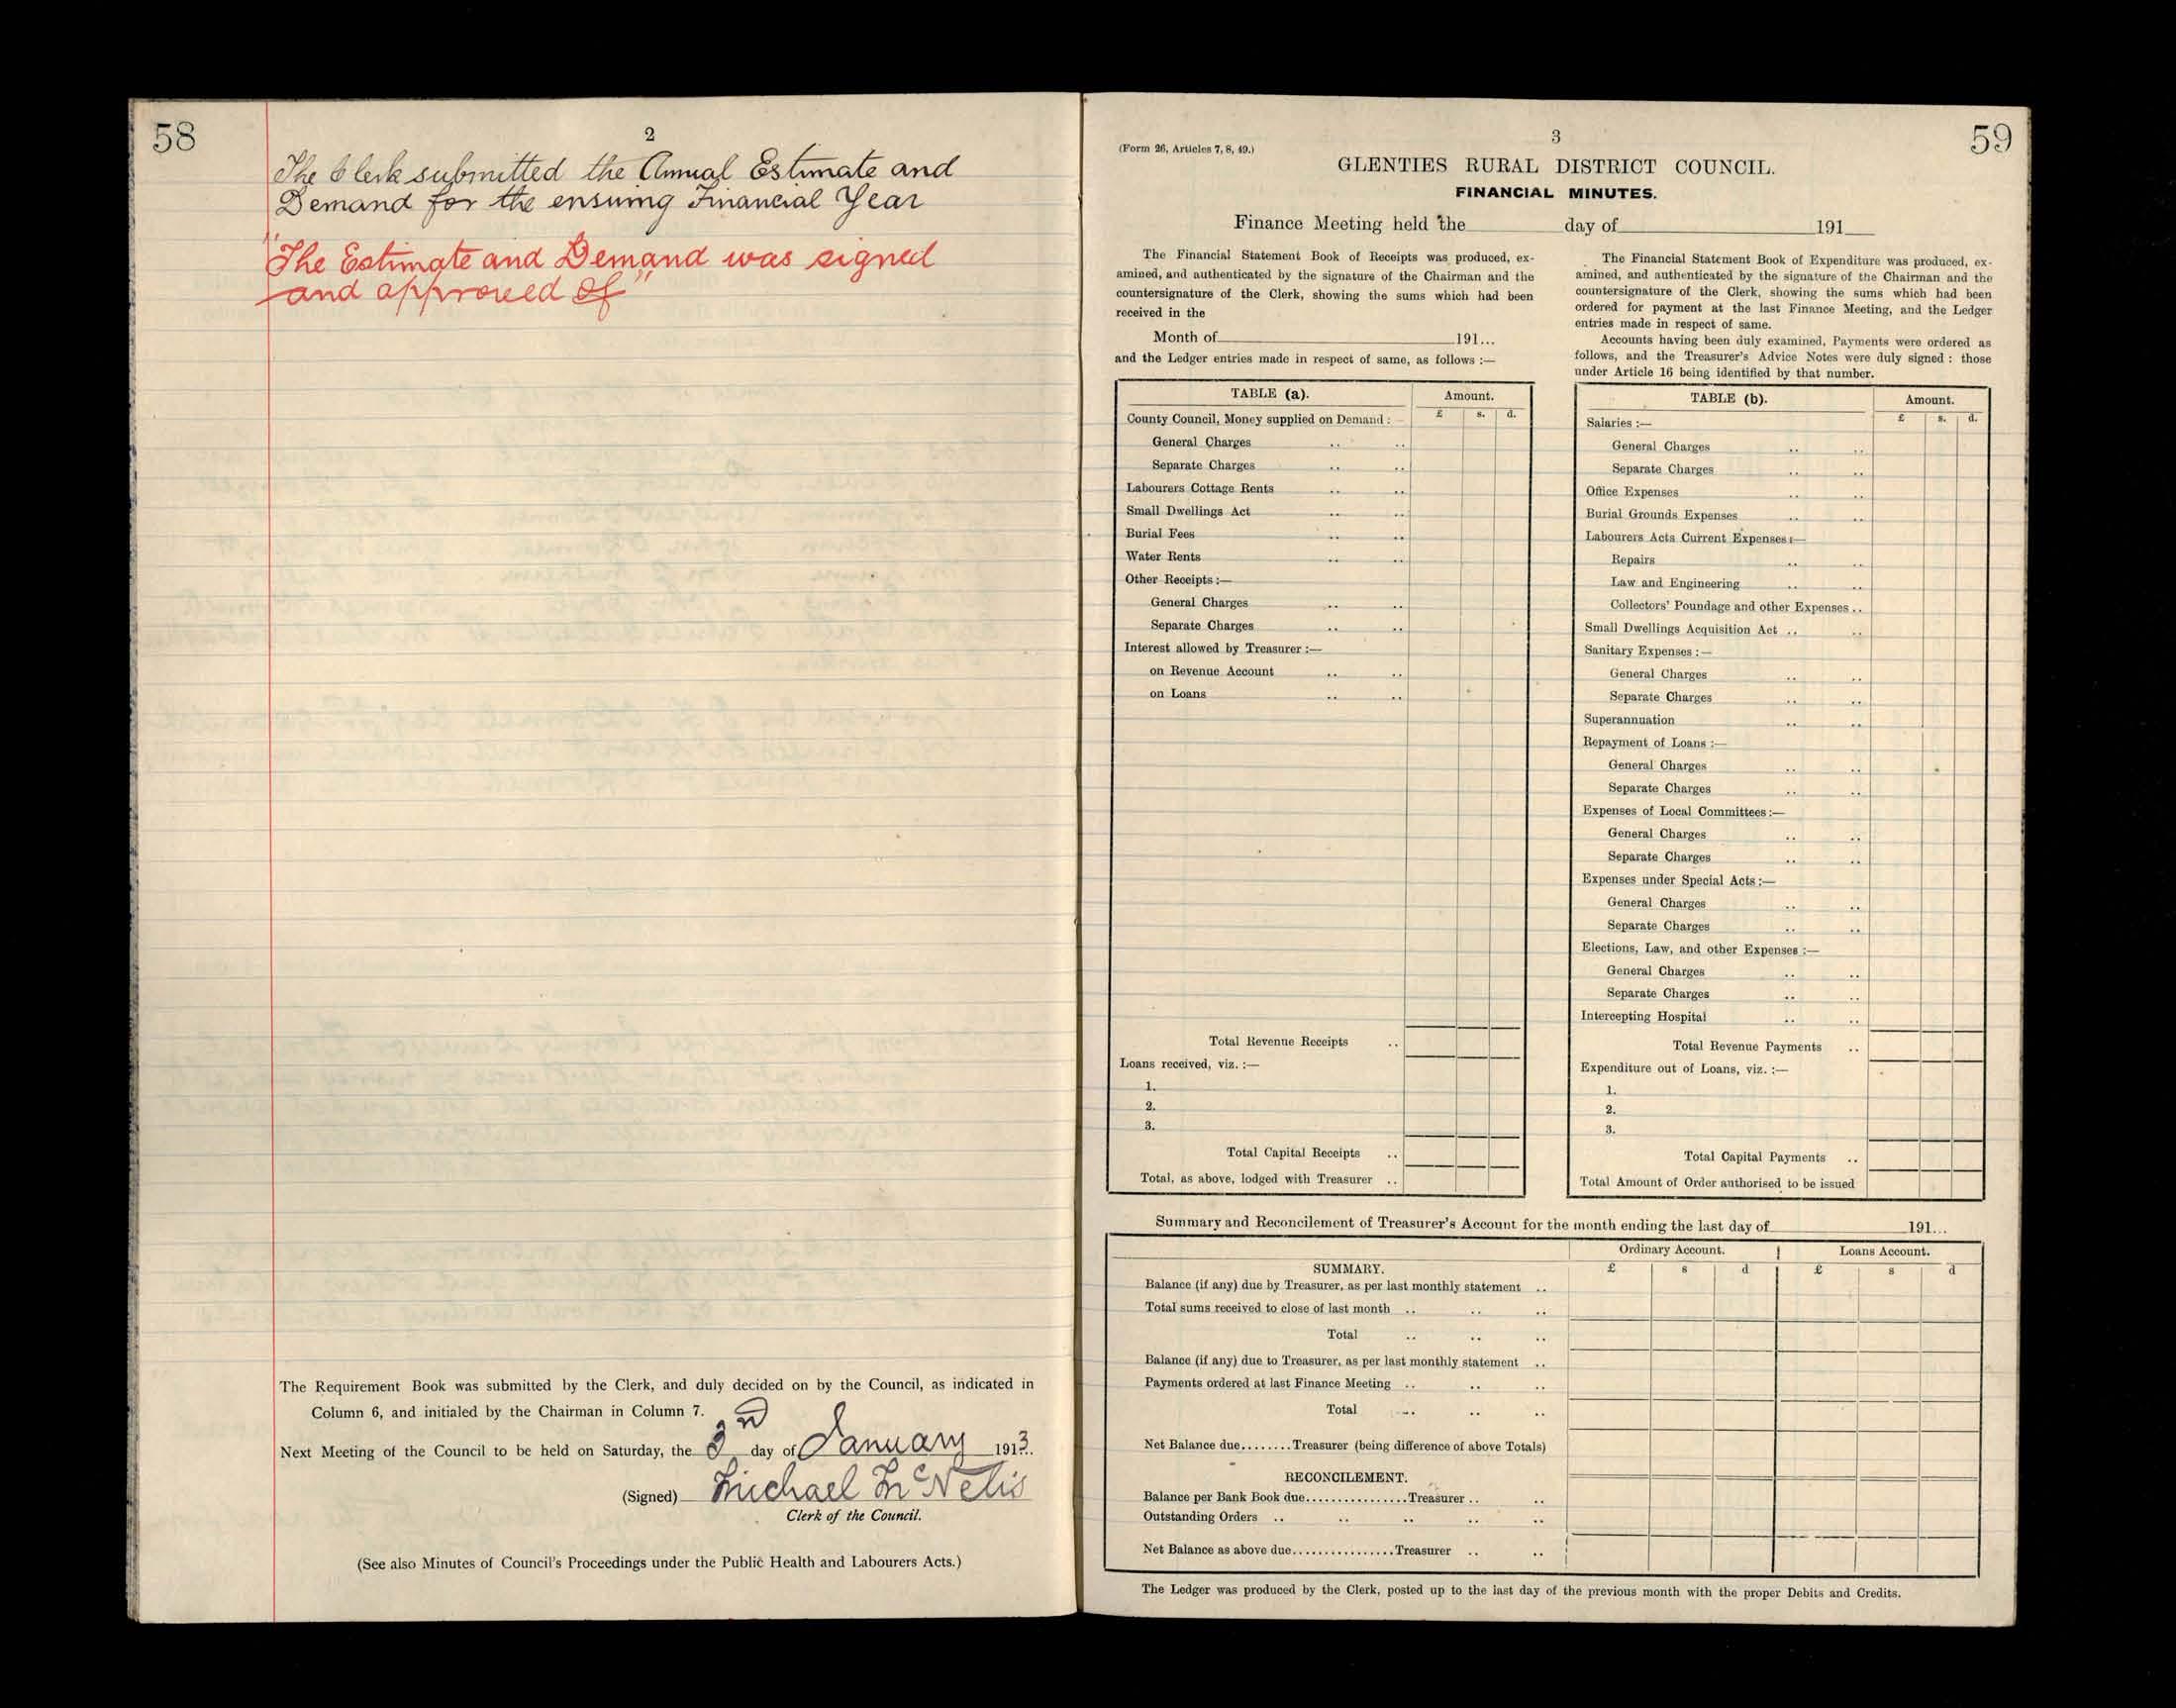 58
2
The Clerk submitted the Annual Estimate and
Demand for the ensuing Financial Year
"The Estimate and Demand was signed
and approved of"
The Requirement Book was submitted by the Clerk, and duly decided on by the Council, as indicated in
Column 6, and initialed by the Chairman in Column 7.
Next Meeting of the Council to be held on Saturday, the 3rd day of January 1913.
(Signed) Michael McNelis
Clerk of the Council.
(See also Minutes of Council's Proceedings under the Public Health and Labourers Acts.)
59
3
(Form 26, Articles 7, 8, 49.)
GLENTIES RURAL DISTRICT COUNCIL.
FINANCIAL MINUTES.
Finance Meeting held the day of 191
The Financial Statement Book of Receipts was produced, ex-
amined, and authenticated by the signature of the Chairman and the
countersignature of the Clerk, showing the sums which had been
received in the
Month of 191...
and the Ledger entries made in respect of same, as follows :—
TABLE (a). Amount.
£ s. d.
County Council, Money supplied on Demand :
General Charges .. ..
Separate Charges .. ..
Labourers Cottage Rents .. ..
Small Dwellings Act .. ..
Burial Fees .. ..
Water Rents .. ..
Other Receipts :—
General Charges .. ..
Separate Charges .. ..
Interest allowed by Treasurer :—
on Revenue Account .. ..
on Loans .. ..
Total Revenue Receipts ..
Loans received, viz. :—
1.
2.
3.
Total Capital Receipts ..
Total, as above, lodged with Treasurer ..
The Financial Statement Book of Expenditure was produced, ex-
amined, and authenticated by the signature of the Chairman and the
countersignature of the Clerk, showing the sums which had been
ordered for payment at the last Finance Meeting, and the Ledger
entries made in respect of same.
Accounts having been duly examined, Payments were ordered as
follows, and the Treasurer's Advice Notes were duly signed : those
under Article 16 being identified by that number.
TABLE (b). Amount.
£ s. d.
Salaries :—
General Charges .. ..
Separate Charges .. ..
Office Expenses .. ..
Burial Grounds Expenses .. ..
Labourers Acts Current Expenses :—
Repairs .. ..
Law and Engineering .. ..
Collectors' Poundage and other Expenses ..
Small Dwellings Acquisition Act .. ..
Sanitary Expenses :—
General Charges .. ..
Separate Charges .. ..
Superannuation .. ..
Repayment of Loans :—
General Charges .. ..
Separate Charges .. ..
Expenses of Local Committees :—
General Charges .. ..
Separate Charges .. ..
Expenses under Special Acts :—
General Charges .. ..
Separate Charges .. ..
Elections, Law, and other Expenses :—
General Charges .. ..
Separate Charges .. ..
Intercepting Hospital .. ..
Total Revenue Payments ..
Expenditure out of Loans, viz. :—
1.
2.
3.
Total Capital Payments ..
Total Amount of Order authorised to be issued
Summary and Reconcilement of Treasurer's Account for the month ending the last day of 191...
Ordinary Account. Loans Account.
SUMMARY. £ s d £ s d
Balance (if any) due by Treasurer, as per last monthly statement ..
Total sums received to close of last month .. .. ..
Total .. .. ..
Balance (if any) due to Treasurer, as per last monthly statement ..
Payments ordered at last Finance Meeting .. .. ..
Total .. .. ..
Net Balance due........Treasurer (being difference of above Totals)
RECONCILEMENT.
Balance per Bank Book due................Treasurer .. ..
Outstanding Orders .. .. .. .. ..
Net Balance as above due................Treasurer .. ..
The Ledger was produced by the Clerk, posted up to the last day of the previous month with the proper Debits and Credits.